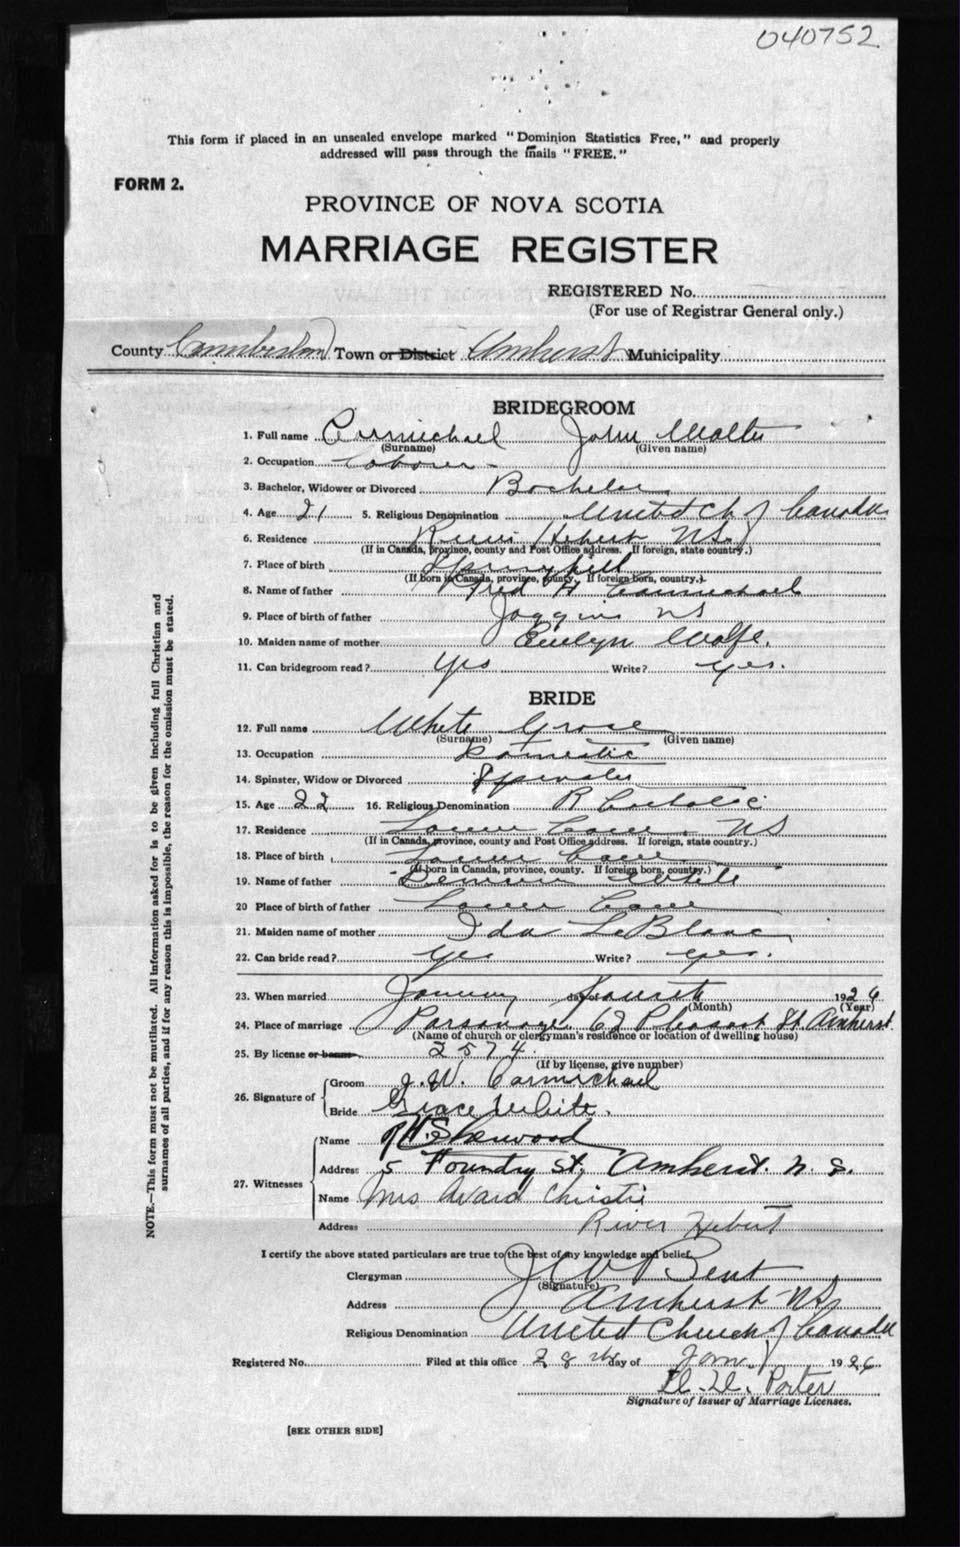 040752
This form if placed in an unsealed envelope marked "Dominion Statistics Free," and properly
addressed will pass through the mails "FREE."
FORM 2.
PROVINCE OF NOVA SCOTIA
MARRIAGE REGISTER
REGISTERED No.
(For use of Registrar General only.)
County Cumberland Town or District Amherst Municipality
BRIDEGROOM
1. Full name Carmichael John Walter
(Surname) (Given name)
2. Occupation Laborer
3. Bachelor, Widower or Divorced Bachelor
4. Age 21 5. Religious Denomination United Ch of Canada
6. Residence River Hebert NS
(If in Canada, province, county and Post Office address. If foreign, state country.)
7. Place of birth Springhill
(If born in Canada, province, county. If foreign born, country.)
8. Name of father Fred H Carmichael
9. Place of birth of father Joggins NS
10. Maiden name of mother Evelyn Wolfe.
11. Can bridegroom read? Yes Write? yes.
BRIDE
12. Full name White Grace
(Surname) (Given name)
13. Occupation Domestic
14. Spinster, Widow or Divorced Spinster
15. Age 22 16. Religious Denomination R Catholic
17. Residence Lower Cove, NS
(If in Canada, province, county and Post Office address. If foreign, state country.)
18. Place of birth Lower Cove
(If born in Canada, province, county. If foreign born, country.)
19. Name of father White
20 Place of birth of father Lower Cove
21. Maiden name of mother Ida LeBlanc
22. Can bride read? Yes Write? yes.
23. When married January day of Fourth 1926
(Month) (Year)
24. Place of marriage Parsonage 62 Pleasant St Amherst
(Name of church or clergyman's residence or location of dwelling house)
25. By license or banns 2574
(If by license, give number)
26. Signature of Groom J. W. Carmichael
Bride Grace White.
27. Witnesses Name Sherwood
Address 5 Foundry St, Amherst. N. S.
Name Mrs Avard Christie
Address River Hebert
I certify the above stated particulars are true to the best of my knowledge and belief.
Clergyman Bent
(Signature)
Address Amherst NS
Religious Denomination United Church of Canada
Registered No. Filed at this office 28th day of Jany 1926
Porter
Signature of Issuer of Marriage Licenses.
[SEE OTHER SIDE]
NOTE.—This form must not be mutilated. All information asked for is to be given including full Christian and
surnames of all parties, and if for any reason this is impossible, the reason for the omission must be stated.